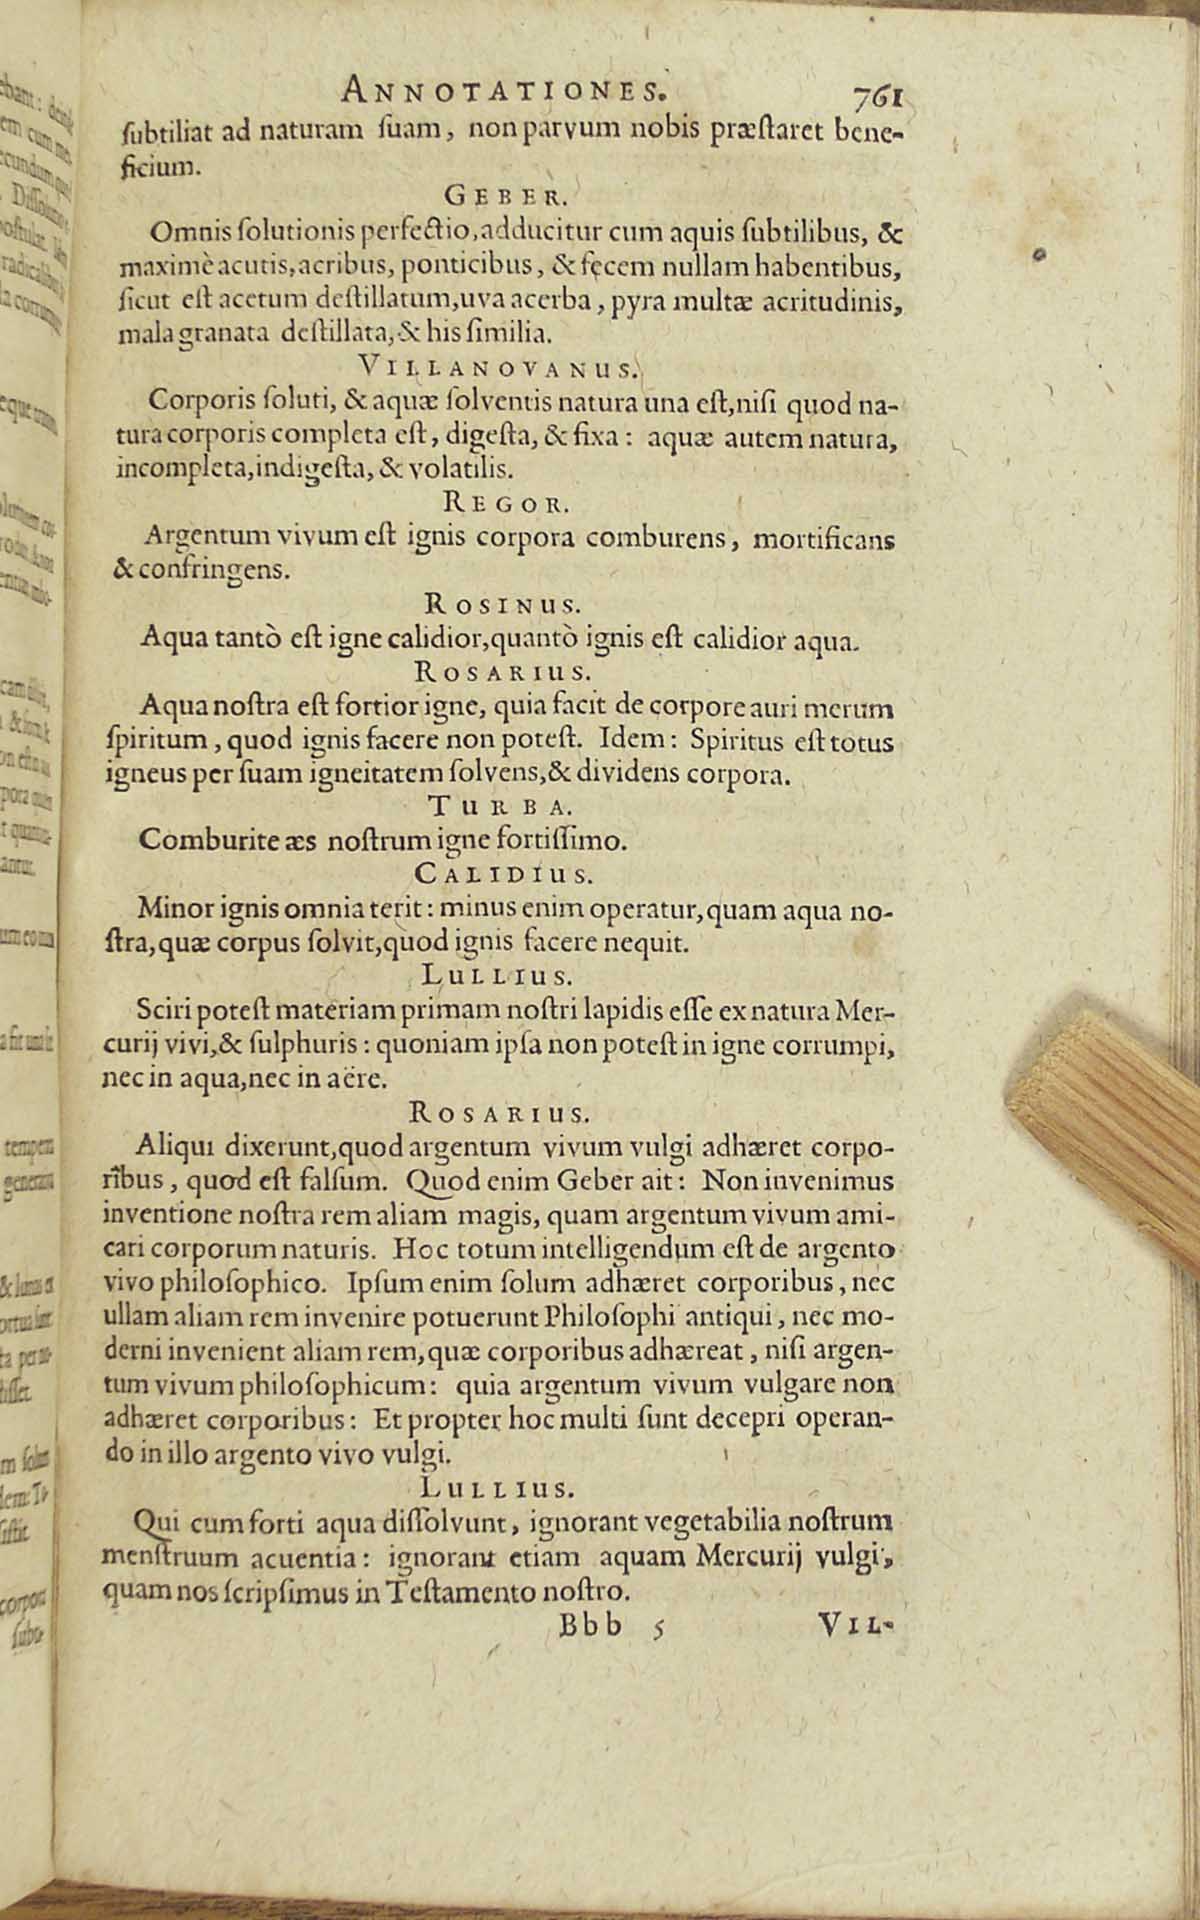 ANNOTATIONES. 761
ſubtiliat ad naturam ſuam, non parvum nobis præſtaret bene-
ficium.
GEBER.
Omnis ſolutionis perfectio, adducitur cum aquis ſubtilibus, &
maximè acutis, acribus, ponticibus, & fęcem nullam habentibus,
ſicut eſt acetum deſtillatum, uva acerba, pyra multæ acritudinis,
mala granata deſtillata, & his ſimilia.
VILLANOVANUS.
Corporis ſoluti, & aquæ ſolventis natura una eſt, niſi quod na-
tura corporis completa eſt, digeſta, & fixa: aquæ autem natura,
incompleta, indigeſta, & volatilis.
REGOR.
Argentum vivum eſt ignis corpora comburens, mortificans
& confringens.
ROSINUS.
Aqua tantò eſt igne calidior, quantò ignis eſt calidior aqua.
ROSARIUS.
Aqua noſtra eſt fortior igne, quia facit de corpore auri merum
ſpiritum, quod ignis facere non poteſt. Idem: Spiritus eſt totus
igneus per ſuam igneitatem ſolvens, & dividens corpora.
TURBA.
Comburite æs noſtrum igne fortiſſimo.
CALIDIUS.
Minor ignis omnia terit: minus enim operatur, quam aqua no-
ſtra, quæ corpus ſolvit, quod ignis facere nequit.
LULLIUS.
Sciri poteſt materiam primam noſtri lapidis eſſe ex natura Mer-
curij vivi, & ſulphuris: quoniam ipſa non poteſt in igne corrumpi,
nec in aqua, nec in aëre.
ROSARIUS.
Aliqui dixerunt, quod argentum vivum vulgi adhæret corpo-
ribus, quod eſt falſum. Quod enim Geber ait: Non invenimus
inventione noſtra rem aliam magis, quam argentum vivum ami-
cari corporum naturis. Hoc totum intelligendum eſt de argento
vivo philoſophico. Ipſum enim ſolum adhæret corporibus, nec
ullam aliam rem invenire potuerunt Philoſophi antiqui, nec mo-
derni invenient aliam rem, quæ corporibus adhæreat, niſi argen-
tum vivum philoſophicum: quia argentum vivum vulgare non
adhæret corporibus: Et propter hoc multi ſunt decepri operan-
do in illo argento vivo vulgi.
LULLIUS.
Qui cum forti aqua diſſolvunt, ignorant vegetabilia noſtrum
menſtruum acuentia: ignorant etiam aquam Mercurij vulgi,
quam nos ſcripſimus in Teſtamento noſtro.
Bbb 5 VIL-